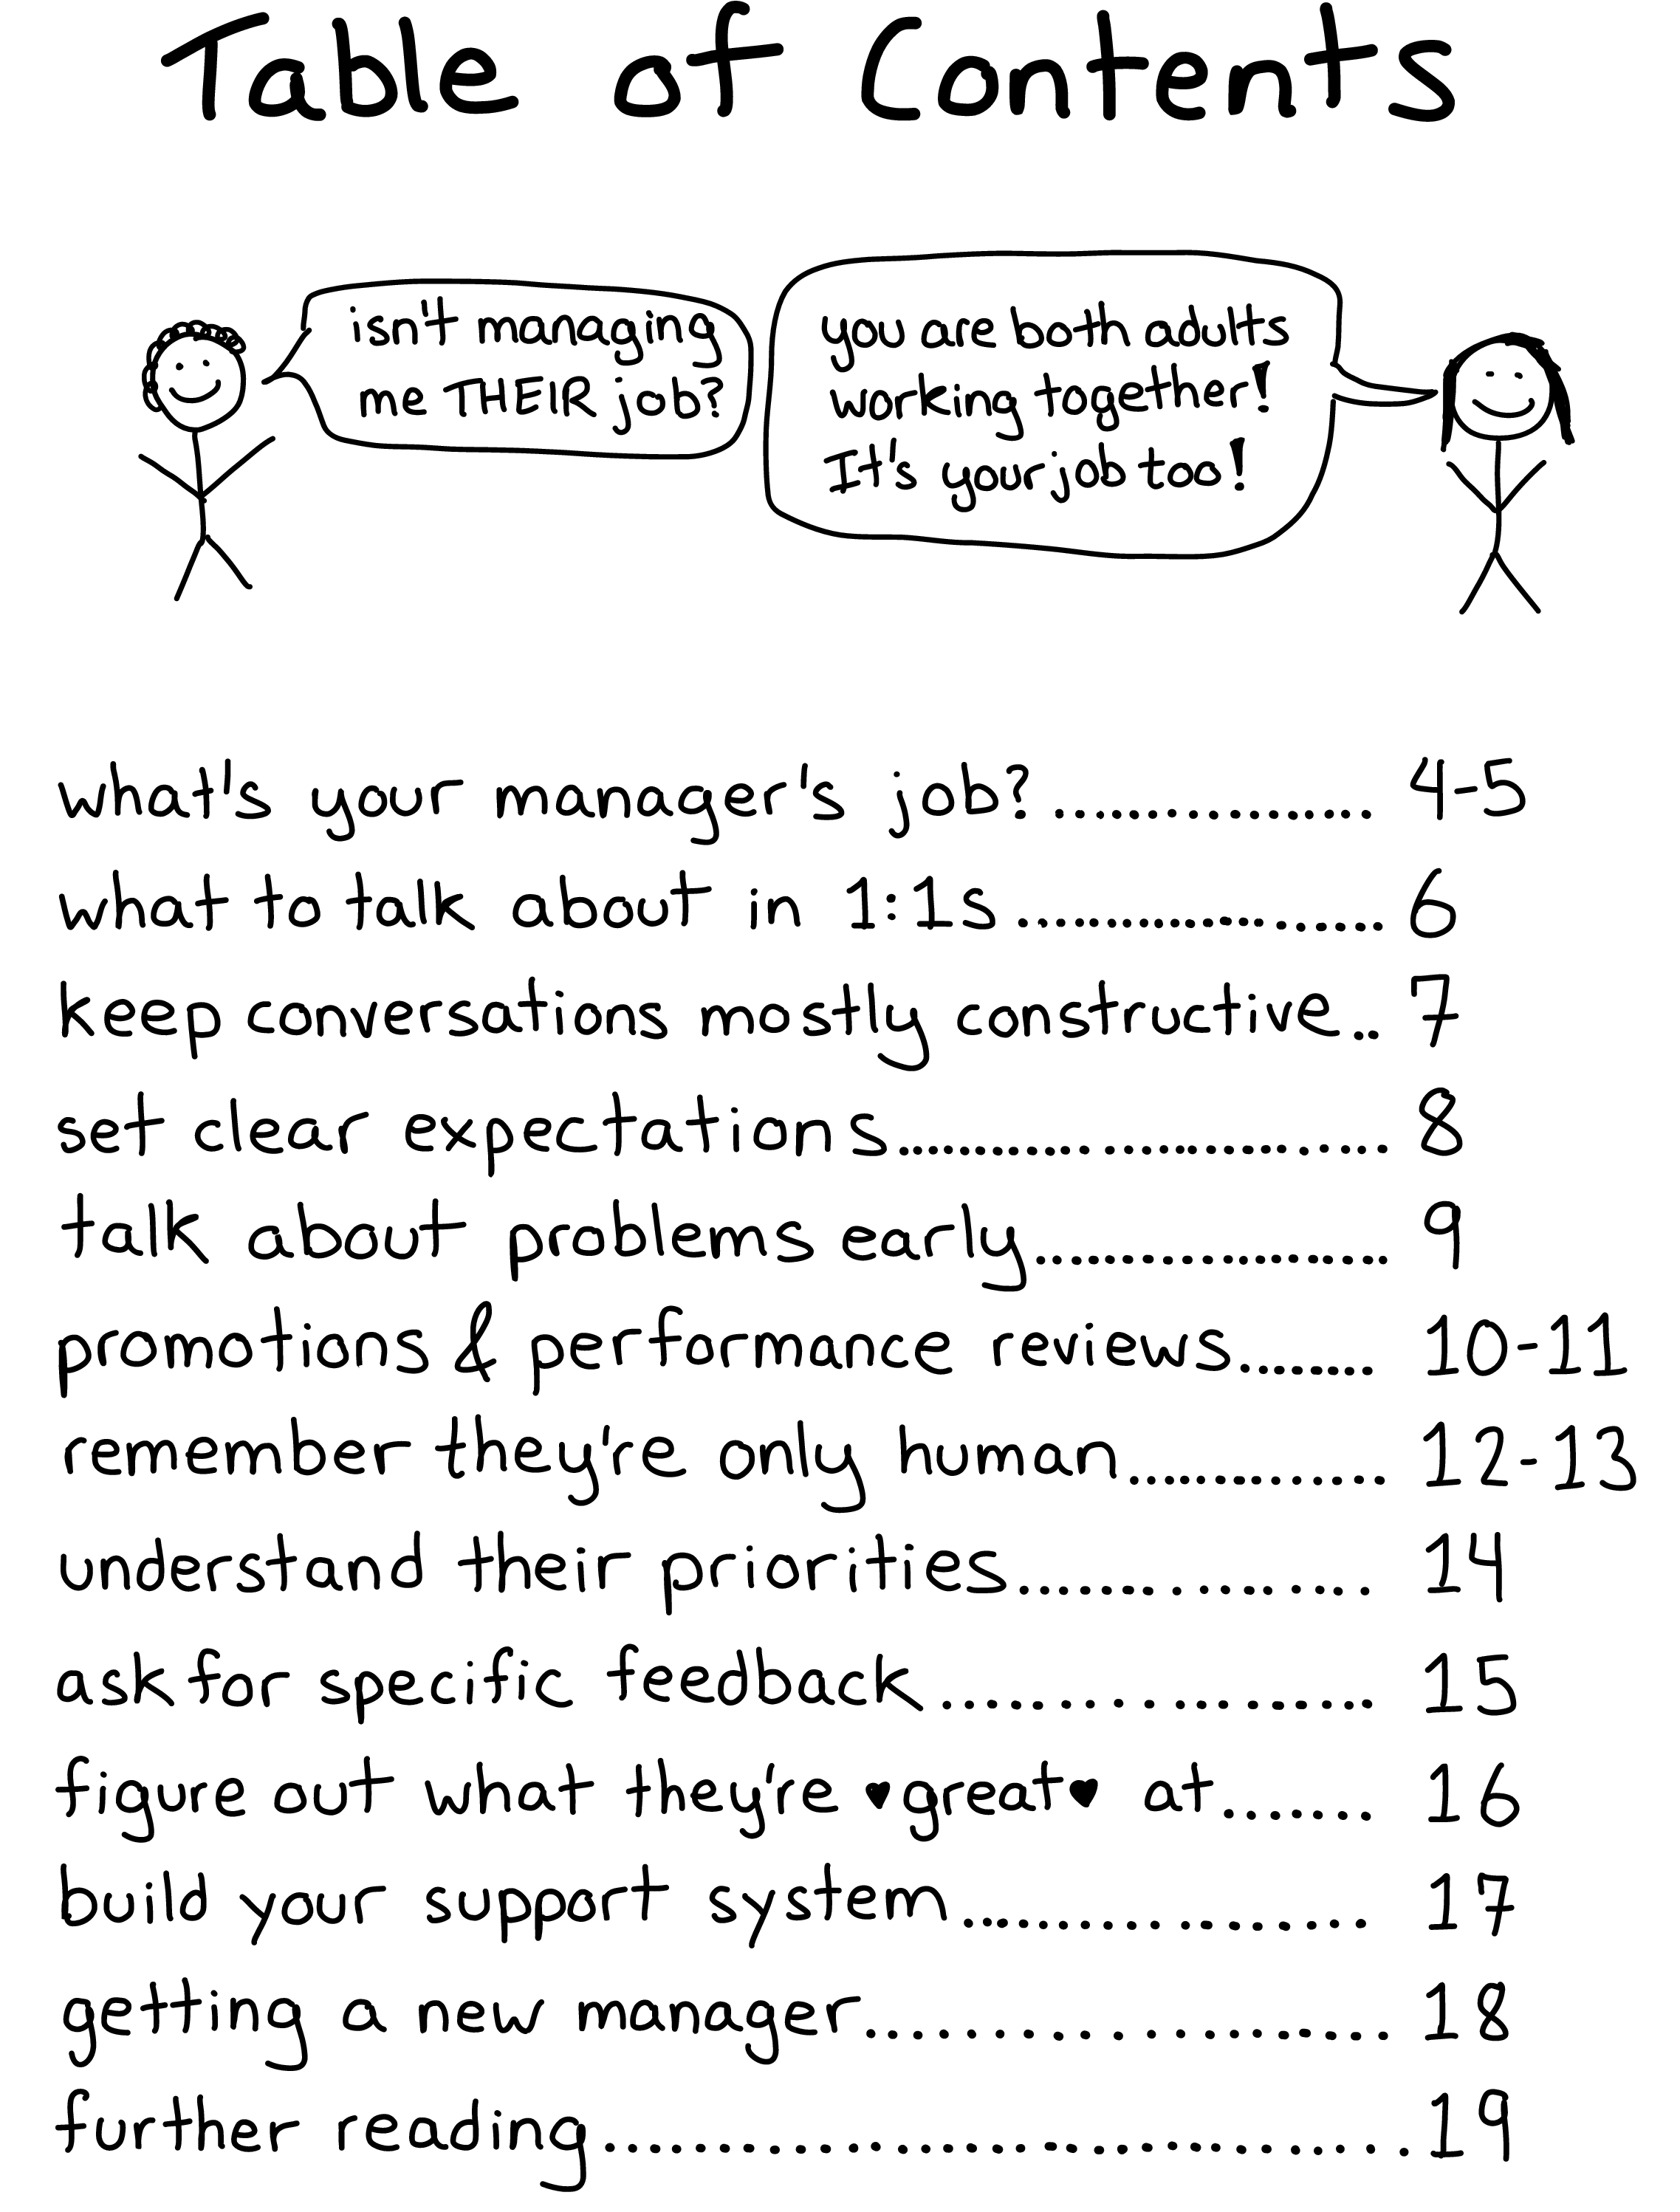 Table of Contents
isn't managing
me THEIR job?
you are both adults
working together!
It's your job too!
what's your manager's job?................ 4-5
what to talk about in 1:1s .................... 6
keep conversations mostly constructive.. 7
set clear expectations.......................... 8
talk about problems early................... 9
promotions & performance reviews........ 10-11
remember they're only human.............. 12-13
understand their priorities................. 14
ask for specific feedback.................... 15
figure out what they're ♥great♥ at....... 16
build your support system................... 17
getting a new manager..................... 18
further reading.................................. 19